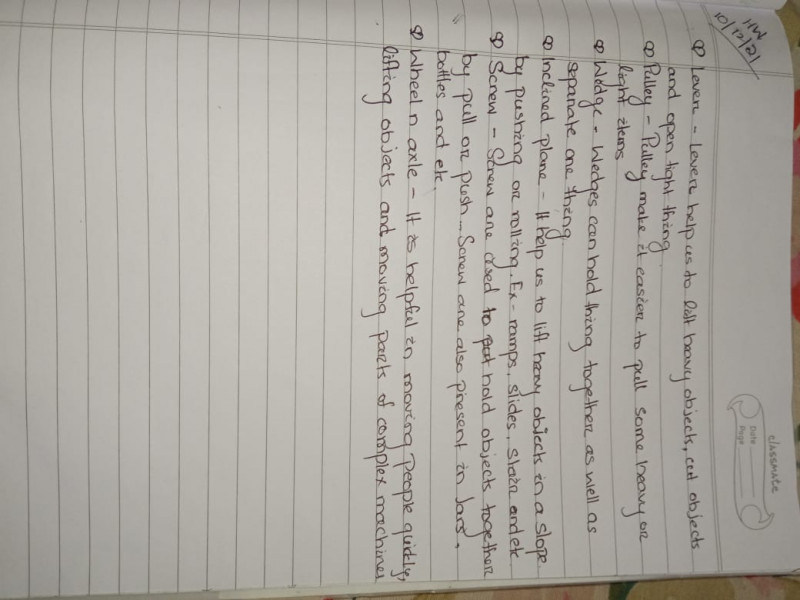 classmate
Date
Page
HW
10/12/21
Lever - Lever help us to lift heavy objects, cut objects
and open tight thing.
Pulley - Pulley make it easier to pull some heavy or
light items
Wedge - Wedges can hold thing together as well as
separate one thing.
Inclined plane - It help us to lift heavy objects in a slope
by pushing or rolling. Ex - ramps, slides, stair and etc
Screw - Screw are used to hold objects together
by pull or push - Screw are also present in Jars,
bottles and etc.
Wheel n axle - It is helpful in moving people quickly,
lifting objects and moving parts of complex machines